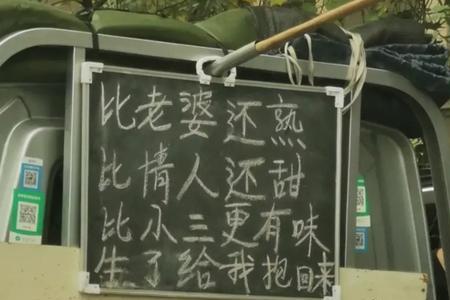 比老婆还熟
比情人还甜
比小三更有味
生了给我抱回来